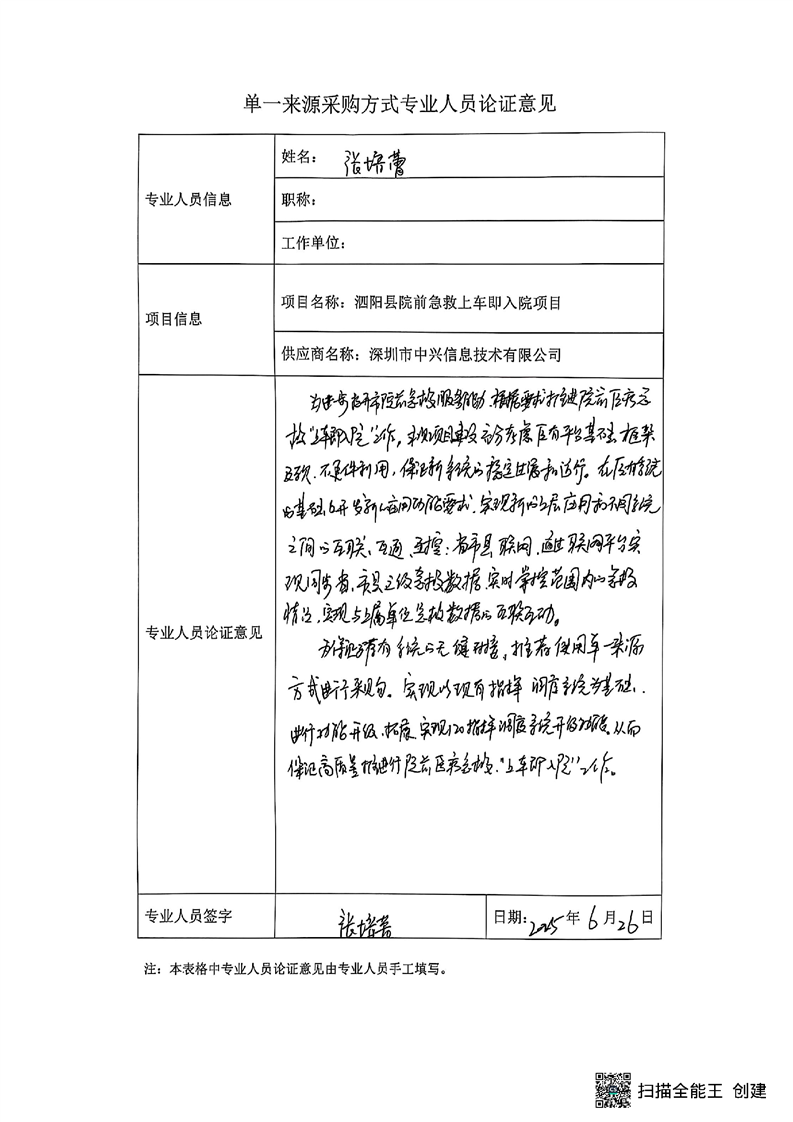 单一来源采购方式专业人员论证意见
专业人员信息
姓名： 张培蕾
职称：
工作单位：
项目信息
项目名称：泗阳县院前急救上车即入院项目
供应商名称：深圳市中兴信息技术有限公司
专业人员论证意见
为进一步提升院前急救服务能力，根据要求推进院前医疗急
救“上车即入院”工作，本次项目建设充分考虑原有平台基础、框架
保证新系统的稳定 和运行。在原有系统
的基础上开发新的应用功能要求，实现新的上层应用和不同系统
之间的互联、互通、互控；省市县联网，通过联网平台实
现同步省、市县三级急救数据，实时掌控范围内的急救
情况，实现与上属单位急救数据的互联互动。
为保证与原有系统的无缝对接，推荐使用单一来源
方式进行采购。实现以现有指挥调度系统为基础，
进行功能升级、拓展，实现120指挥调度系统升级 从而
保证高质量推进院前医疗急救，“上车即入院”工作。
专业人员签字
张培蕾
日期：2025年6月26日
注：本表格中专业人员论证意见由专业人员手工填写。
扫描全能王 创建